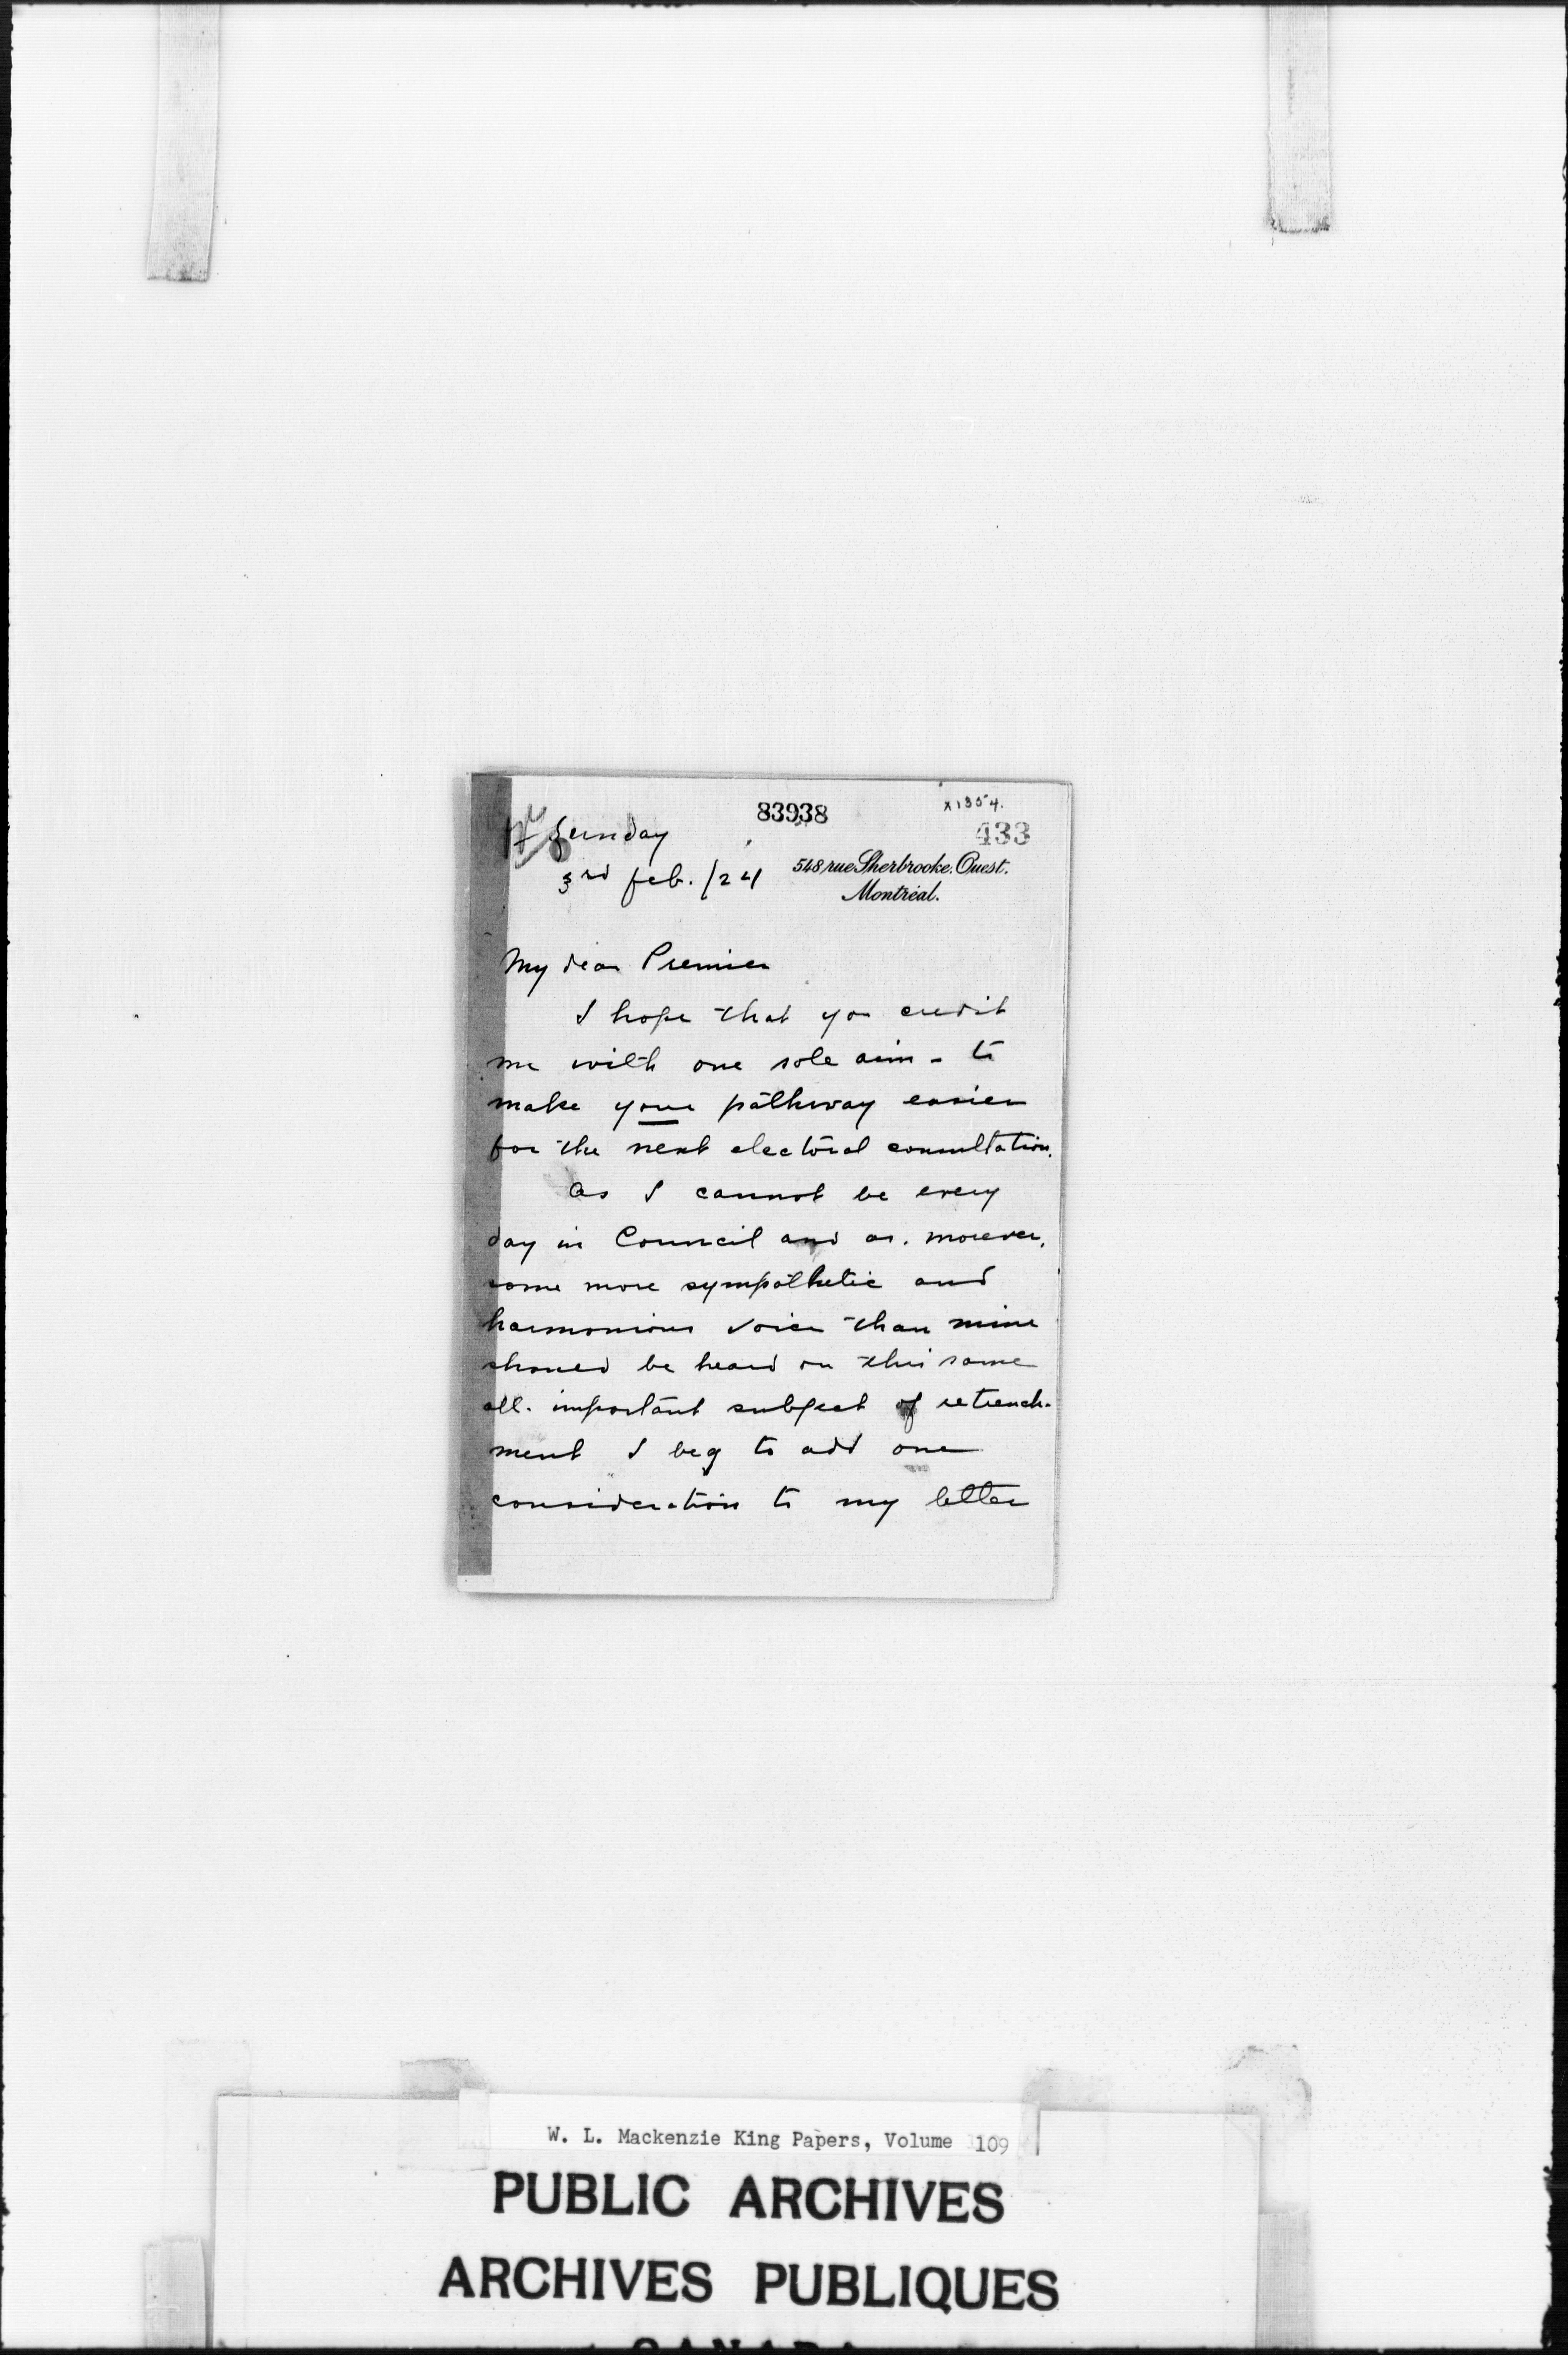 83938
x1354.
Sunday
433
3rd feb. /24
548 rue Sherbrooke. Ouest.
Montréal.
My dear Premier
I hope that you credit
me with one sole aim - to
make your pathway easier
for the next electoral consultation.
As I cannot be every
day in Council and as. morever,
some more sympathetic and
harmonious voice than mine
should be heard on this same
all. important subject of retrench-
ment I beg to add one
consideration to my letter
W. L. Mackenzie King Papers, Volume 109
PUBLIC ARCHIVES
ARCHIVES PUBLIQUES
CANADA